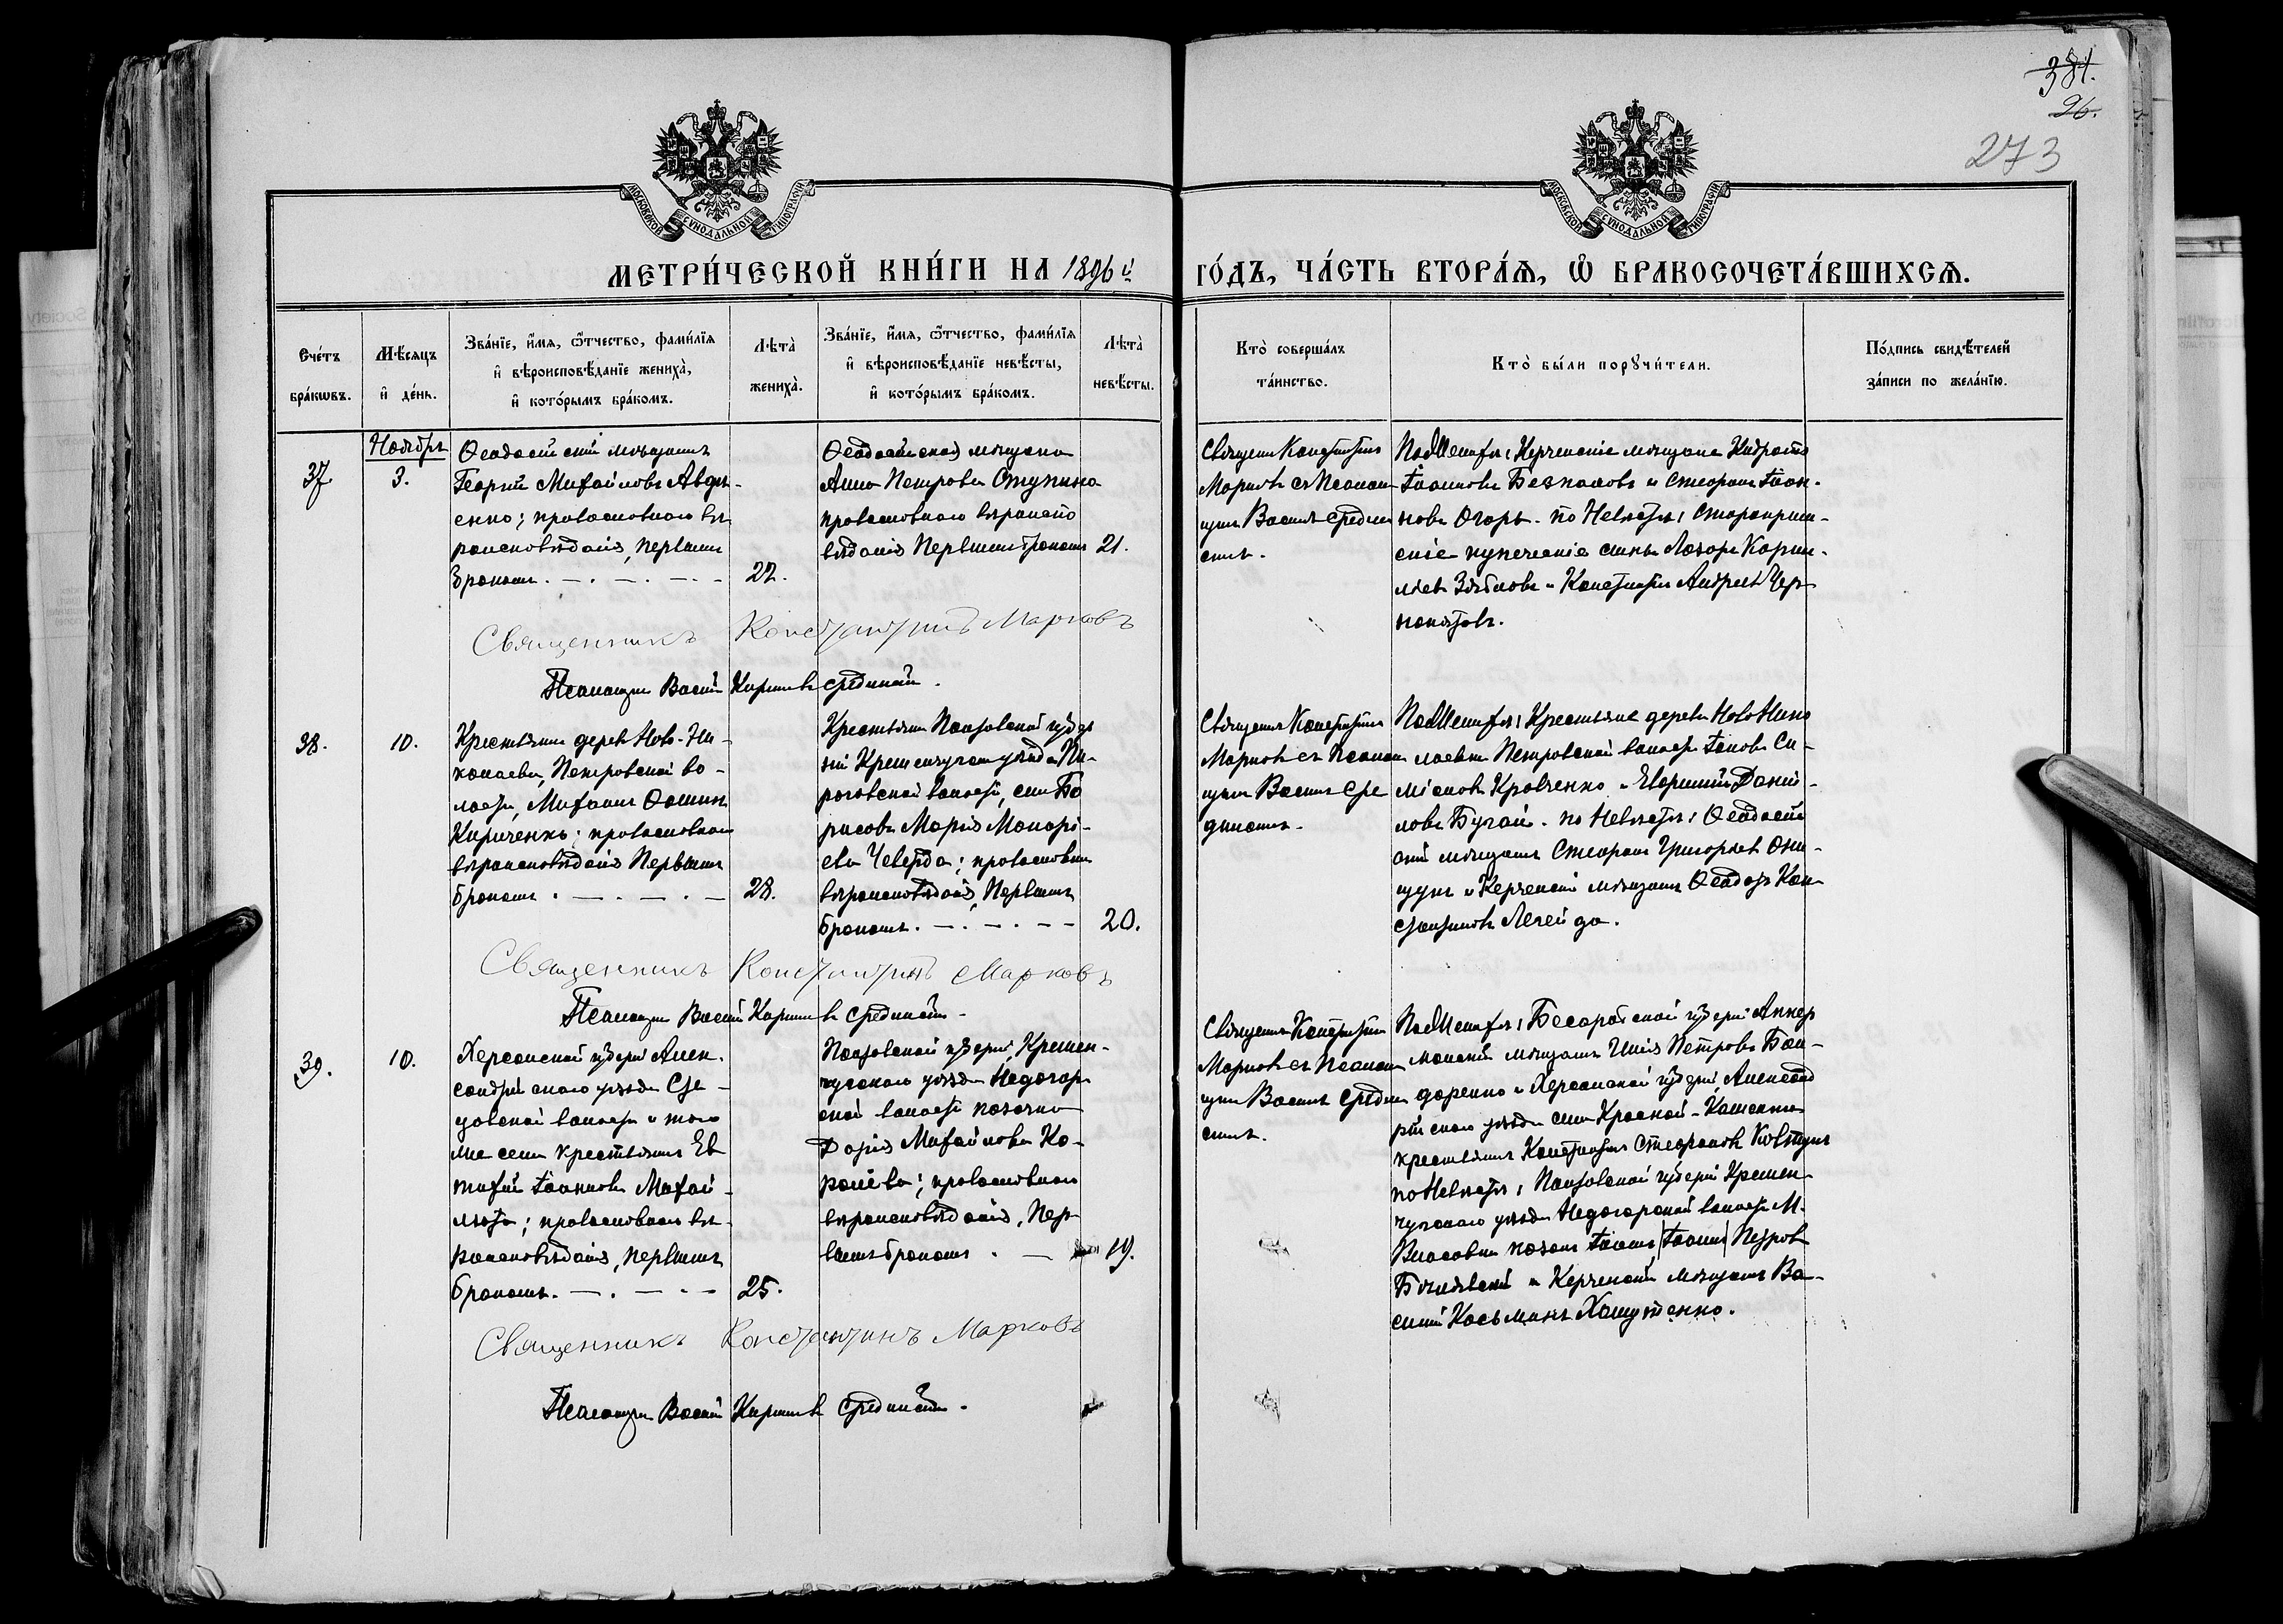 381.
26.
273
МОСКОВСКОЙ СѴНОДАЛЬНОЙ ТИПОГРАФІИ
МОСКОВСКОЙ СѴНОДАЛЬНОЙ ТИПОГРАФІИ
МЕТРИ́ЧЕСКОЙ КНИ́ГИ НА 1896 й ГО́ДЪ, ЧА́СТЬ ВТОРА́Ѧ, Ѡ БРАКОСОЧЕТА́ВШИХСѦ.
Сче́тъ бра́кѡвъ.
Мѣ́сяцъ и҆ де́нь.
Зва́нїе, и҆́мя, ѻ҆́тчество, фами́лїя
и҆ вѣроисповѣ́данїе жениха̀,
и҆ кото́рымъ бра́комъ.
Лѣта̀ жениха̀.
Зва́нїе, и҆́мя, ѻ҆́тчество, фами́лїя
и҆ вѣроисповѣ́данїе невѣ́сты,
и҆ кото́рымъ бра́комъ.
Лѣта̀ невѣ́сты.
Кто̀ соверша́лъ та́инство.
Кто̀ бы́ли порꙋчи́тели.
По́дпись свидѣ́телей
за́писи по жела́нїю.
Ноябрь
37.
3.
Ѳеодосійскій мѣщанинъ
Георгій Михайловъ Авдѣ-
енко; православнаго вѣ-
роисповѣданія, первымъ
бракомъ.
22.
Ѳеодосійская мѣщанка
Анна Петрова Ступина
православнаго вѣроиспо
вѣданія первымъ бракомъ
21.
Священ. Константинъ
Марковъ съ Псалом
щик. Васил. Средин
скимъ.
По Женихѣ: Керченскіе мѣщане
Іоанновъ Безпаловъ и Стефанъ Іоан-
новъ Огорь. по Невѣстѣ:
купеческіе сынъ Лазарь
и Константинъ Андреевъ Чер-
Священникъ Константинъ Марковъ
Псаломщик Васил Срединскій.
38.
10.
Крестьянин дерев. Ново-Ни-
колаевки, Петровской во-
лости, Михаилъ Ѳоминъ
Кириченко; православнаго
вѣроисповѣданія первымъ
бракомъ.
28.
Крестьянка Полтавской губер
ніи Кременчугскаго уѣзда Пи-
роговской волости, села Бо
рисовки Марія Макарі-
ева Чеверда; православна
вѣроисповѣданія, первымъ
бракомъ.
20.
Священ. Константинъ
Марковъ съ Псалом
щик. Васил. Сре
динскимъ.
По Женихѣ: Крестьяне дерев. Ново Нико
лаевки Петровской волости Іаковъ
Кравченко и Евфимій Даній-
ловъ Бугай. по Невѣстѣ: Ѳеодосій
скій мѣщанинъ Стефанъ Григорьевъ Они-
щукъ и Керченскій мѣщанинъ Ѳеодоръ Кон
стантиновъ Легейда.
Священникъ Константинъ Марковъ
Псаломщик Васил Срединскій.
39.
10.
Херсонской губерніи Алек-
сандрійскаго уѣзда
волости и того
же села крестьянинъ Ев
тихій Іоанновъ Михай-
люта; православнаго вѣ-
роисповѣданія, первымъ
бракомъ.
25.
Полтавской губерніи, Кремен-
чугскаго уѣзда Недогар
ской волости казачка
Дарія Михайлова Ко-
валева; православнаго
вѣроисповѣданія, пер
вымъ бракомъ.
19.
Священ. Константинъ
Марковъ съ Псалом
щик. Васил. Средин
скимъ.
По Женихѣ: Бесарабской губерніи Аккер
манскій мѣщанинъ Илія Петровъ Бон-
даренко и Херсонской губерніи, Александ
рійскаго уѣзда села Красной-Каменки
крестьянинъ Константинъ Стефановъ Ковтунъ
по Невѣстѣ: Полтавской губерніи Кремен
чугскаго уѣзда Недогарской волости
казакъ Іоаннъ Петровъ
и Керченскій мѣщанинъ Ва-
силій Косьминъ Хомутенко.
Священникъ Константинъ Марковъ
Псаломщик Васил Срединскій.